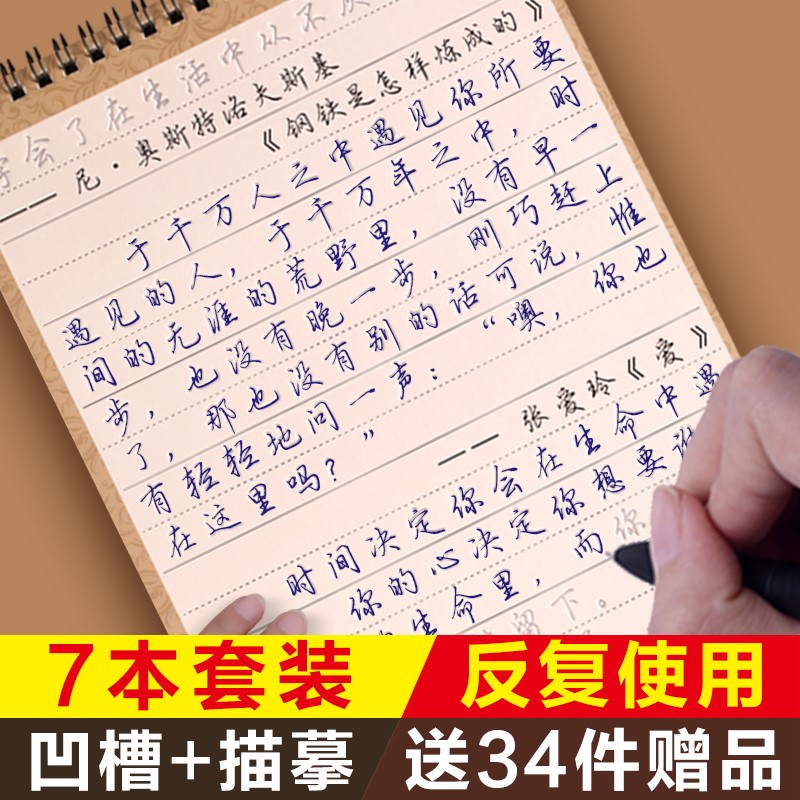 会了在生活中从不
—— 尼·奥斯特洛夫斯基
《钢铁是怎样炼成的》
于千万人之中遇见你所要
遇见的人，于千万年之中，时
间的无涯的荒野里，没有早一
步，也没有晚一步，刚巧赶上
了，那也没有别的话可说，惟
有轻轻地问一声：“噢，你也
在这里吗？”
—— 张爱玲《爱》
时间决定你会在生命中遇
你的心决定你想要谁
生命里，而你
留下。
7本套装
反复使用
凹槽+描摹
送34件赠品